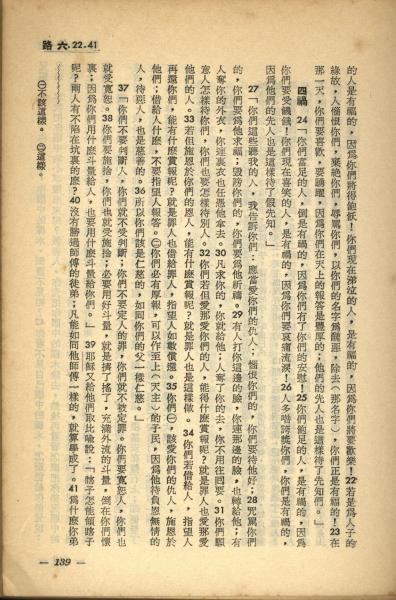 路六.22-41
的人是有福的，因爲你們將得飽飫！你們現在涕泣的人，是有福的，因爲你們將要歡樂！22若是爲人子的
緣故，人惱恨你們，棄絕你們，辱罵你們，以你們的名字爲醜惡，除去(那名字)，你們正是有福的！23在
那一天，你們要喜歡，要踴躍，因爲你們在天上的報答是豐厚的；他們的先人也是這樣待了先知們。」
四禍 24「你們富足的人，倒是有禍的，因爲你們有了你們的安慰！25你們飽足的人，是有禍的，因爲
你們要受饑餓！你們現在喜笑的人，是有禍的，因爲你們要哀痛流淚！26人多嗜誇獎你們，你們是有禍的，
因爲他們的先人也是這樣待了假先知。」
27「你們這些聽我的人，我告訴你們：應當愛你們的仇人；惱恨你們的，你們要待他好；28咒罵你們
的，你們要爲他求福；毀謗你們的，你們要爲他祈禱。29有人打你這邊的臉，你連那邊的臉，也轉給他；有
人奪你的外衣，你連裏衣也任憑他拿去。30凡求你的，你就給他；人奪了你的去，你不用往回要。31你們願
意人怎樣待你們，你們也要怎樣待別人。32你們若但愛那愛你們的人，能得什麼賞報呢？就是罪人也愛那愛
他們的人。33若但施恩於你們的恩人，能有什麼賞報呢？就是罪人也是這樣做。34你們若借給人，指望人
再還你們，能有什麼賞報呢？就是罪人也借給罪人，指望人如數償還。35你們㈠，該愛你們的仇人，施恩於
他們；借給人什麼，不要指望人報答。㈡你們必有厚報，可以作至上(天主)的子民，因爲他待負恩無情的
人，待惡人，也是慈善的。36所以你們該是仁慈的，如同你們的父一樣仁慈。」
37「你們不要判斷人，你們就不受判斷；你們不要定人的罪，你們就不被定罪。你們要寬恕人，你們也
就受寬恕。38你們要施捨，你們也就受施捨；必要用好斗量，就是擠了搖了，充滿外流的斗量，倒在你們懷
裏；因爲你們用什麼斗量給人，也要用什麼斗量給你們。」39耶穌又給他們取比喻說：「瞎子怎能領瞎子
呢？兩人有不陷在坑裏的麼？40沒有勝過師傅的徒弟；凡能如同他師傅一樣的，就算學成了。41爲什麼你弟
㈠不該這樣。㈡這樣。
— 139 —